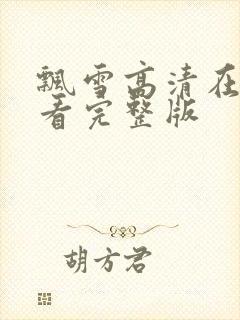 飘雪高清在
看完整版
胡方君